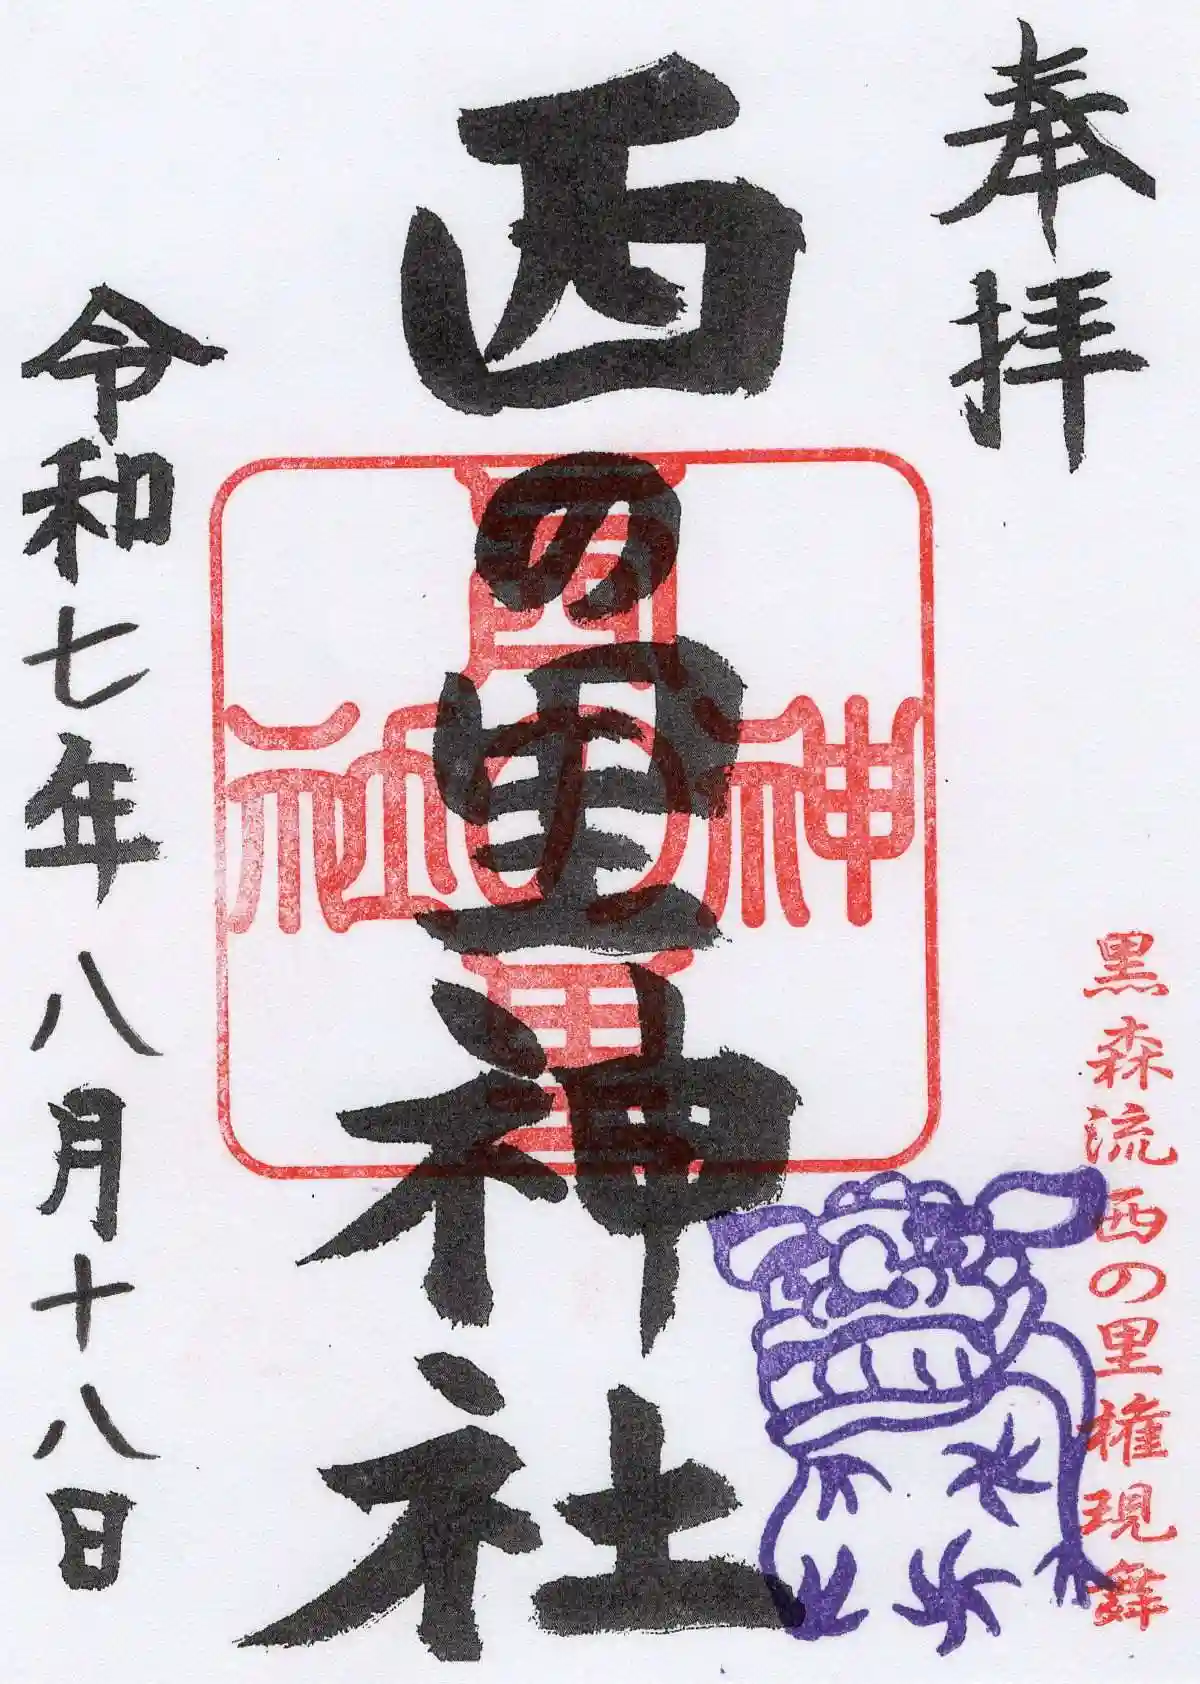 奉拝
黒森流西の里権現舞
西の里神社
西の里神社
令和七年八月十八日